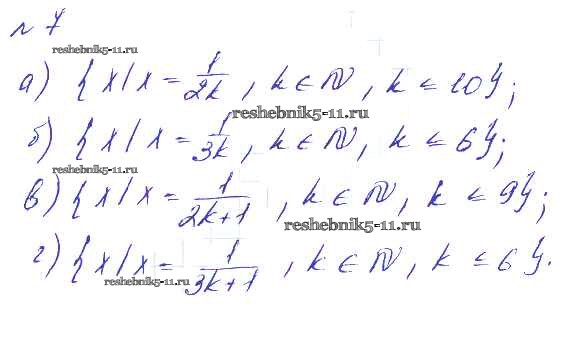 № 7
reshebnik5-11.ru
а) { x | x = 1/2k , k ∈ N , k ≤ 10 };
reshebnik5-11.ru
б) { x | x = 1/3k , k ∈ N , k ≤ 6 };
reshebnik5-11.ru
в) { x | x = 1/2k+1 , k ∈ N , k ≤ 9 };
reshebnik5-11.ru
г) { x | x = 1/3k+1 , k ∈ N , k ≤ 6 }.
reshebnik5-11.ru